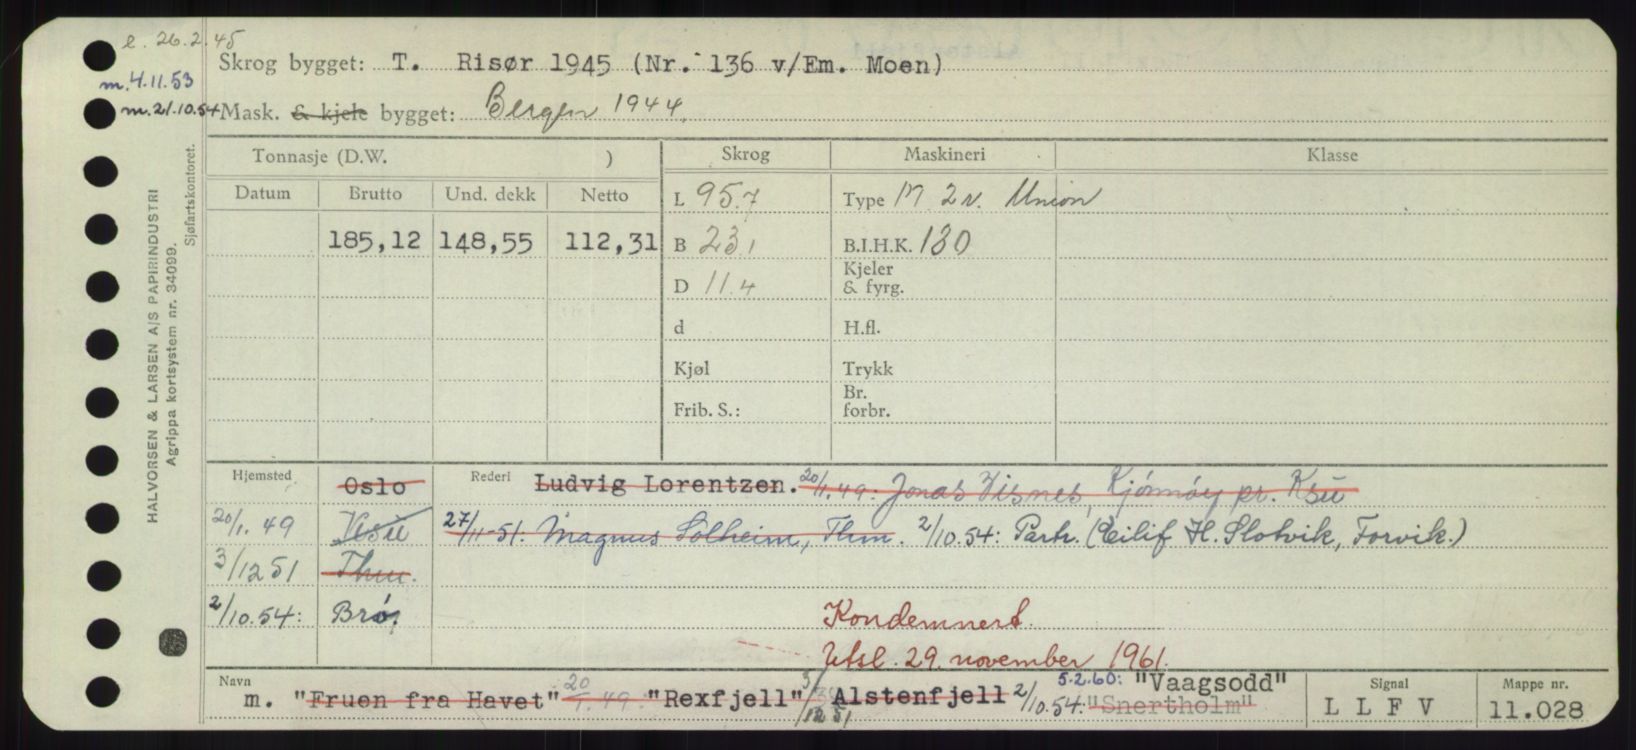 e. 26.2.45
Skrog bygget: T. Risør 1945 (Nr. 136 v/Em. Moen)
m. 4.11.53
m. 21.10.54
Mask. & kjele bygget: Bergen 1944.
HALVORSEN & LARSEN A/S PAPIRINDUSTRI
Agrippa kortsystem nr. 34099.
Sjøfartskontoret.
Tonnasje (D.W. ) Skrog Maskineri Klasse
Datum Brutto Und. dekk Netto L 95.7 Type M. 2 v. Union
185,12 148,55 112,31 B 23,1 B.I.H.K. 130
Kjeler
D 11.4 & fyrg.
d H.fl.
Kjøl Trykk
Br.
Frib. S.: forbr.
Hjemsted Oslo Rederi Ludvig Lorentzen. 20/1.49: Jonas Visnes, pr. Ksu
20/1.49 Ksu 27/11-51: Magnus Solheim, Thm. 2/10.54: Partr. (Eilif H. Slotvik, Forvik.)
3/12 51 Thm.
2/10.54: Brø, Kondemnert.
Utsl. 29. november 1961.
Navn m. "Fruen fra Havet" 20/1.49: "Rexfjell" 3/12 51 Alstenfjell 2/10.54: "Snertholm" 5.2.60: "Vaagsodd" Signal LLFV Mappe nr. 11.028